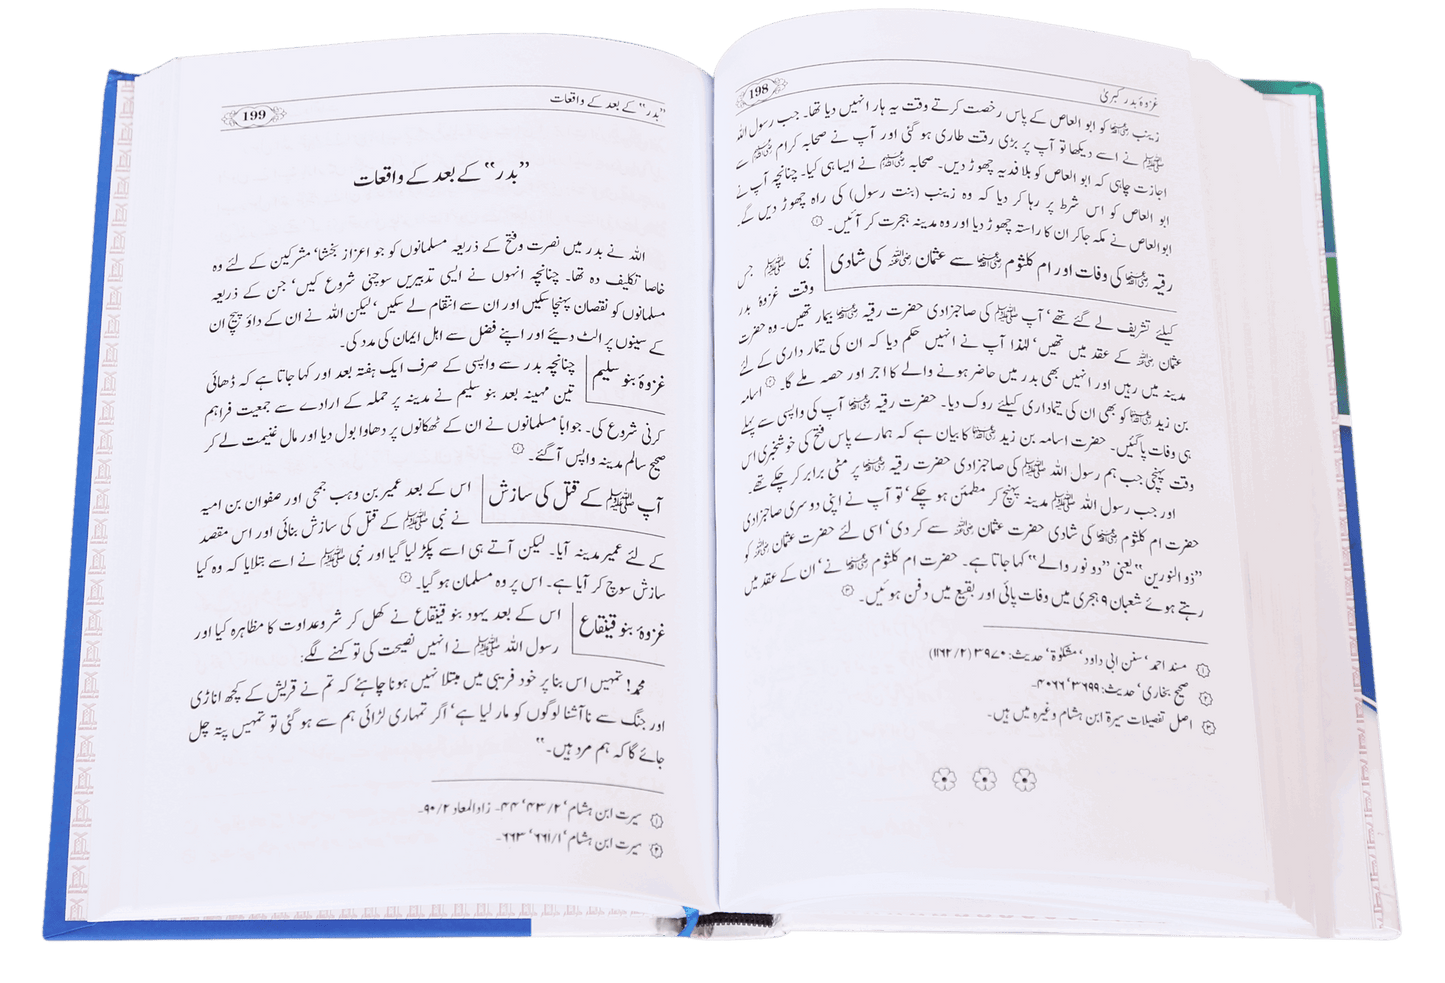 غزوۂ بدر کبریٰ
198
زینب ﷞ کو ابو العاص کے پاس رخصت کرتے وقت یہ ہار انہیں دیا تھا۔ جب رسول اللہ
ﷺ نے اسے دیکھا تو آپ پر بڑی رقت طاری ہو گئی اور آپ نے صحابہ کرام ﷢ سے
اجازت چاہی کہ ابو العاص کو بلا فدیہ چھوڑ دیں۔ صحابہ ﷢ نے ایسا ہی کیا۔ چنانچہ آپ نے
ابو العاص کو اس شرط پر رہا کر دیا کہ وہ زینب (بنت رسول) کی راہ چھوڑ دیں گے۔
ابو العاص نے مکہ جا کر ان کا راستہ چھوڑ دیا اور وہ مدینہ ہجرت کر آئیں۔ ①
رقیہ ﷞ کی وفات اور ام کلثوم ﷞ سے عثمان ﷜ کی شادی
نبی ﷺ جس
وقت غزوۂ بدر
کیلئے تشریف لے گئے تھے‘ آپ ﷺ کی صاحبزادی حضرت رقیہ ﷞ بیمار تھیں۔ وہ حضرت
عثمان ﷜ کے عقد میں تھیں‘ لہٰذا آپ نے انہیں حکم دیا کہ ان کی تیمار داری کے لئے
مدینہ میں رہیں اور انہیں بھی بدر میں حاضر ہونے والے کا اجر اور حصہ ملے گا۔ ② اسامہ
بن زید ﷠ کو بھی ان کی تیماداری کیلئے روک دیا۔ حضرت رقیہ ﷞ آپ کی واپسی سے پہلے
ہی وفات پا گئیں۔ حضرت اسامہ بن زید ﷠ کا بیان ہے کہ ہمارے پاس فتح کی خوشخبری اس
وقت پہنچی جب ہم رسول اللہ ﷺ کی صاحبزادی حضرت رقیہ ﷞ پر مٹی برابر کر چکے تھے۔
اور جب رسول اللہ ﷺ مدینہ پہنچ کر مطمئن ہو چکے‘ تو آپ نے اپنی دوسری صاحبزادی
حضرت ام کلثوم ﷞ کی شادی حضرت عثمان ﷜ سے کر دی‘ اسی لئے حضرت عثمان ﷜ کو
”ذو النورین“ یعنی ”دو نور والے“ کہا جاتا ہے۔ حضرت ام کلثوم ﷞ نے‘ ان کے عقد میں
رہتے ہوئے شعبان ۹ ہجری میں وفات پائی اور بقیع میں دفن ہوئیں۔ ③
① مسند احمد‘ سنن ابی داود‘ مشکوٰۃ‘ حدیث: ۳۹۷۰ (۱۱۶۲/۲)
② صحیح بخاری‘ حدیث: ۳۶۹۹‘ ۴۰۶۶۔
③ اصل تفصیلات سیرۃ ابن ہشام وغیرہ میں ہیں۔
”بدر“ کے بعد کے واقعات
199
”بدر“ کے بعد کے واقعات
اللہ نے بدر میں نصرت و فتح کے ذریعہ مسلمانوں کو جو اعزاز بخشا‘ مشرکین کے لئے وہ
خاصا تکلیف دہ تھا۔ چنانچہ انہوں نے ایسی تدبیریں سوچنی شروع کیں‘ جن کے ذریعہ
مسلمانوں کو نقصان پہنچا سکیں اور ان سے انتقام لے سکیں‘ لیکن اللہ نے ان کے داؤ پیچ ان
کے سینوں پر الٹ دیئے اور اپنے فضل سے اہل ایمان کی مدد کی۔
غزوۂ بنو سلیم
چنانچہ بدر سے واپسی کے صرف ایک ہفتہ بعد اور کہا جاتا ہے کہ ڈھائی
تین مہینہ بعد بنو سلیم نے مدینہ پر حملہ کے ارادے سے جمعیت فراہم
کرنی شروع کی۔ جواباً مسلمانوں نے ان کے ٹھکانوں پر دھاوا بول دیا اور مال غنیمت لے کر
صحیح سالم مدینہ واپس آ گئے۔ ①
آپ ﷺ کے قتل کی سازش
اس کے بعد عمیر بن وہب جمحی اور صفوان بن امیہ
نے نبی ﷺ کے قتل کی سازش بنائی اور اس مقصد
کے لئے عمیر مدینہ آیا۔ لیکن آتے ہی اسے پکڑ لیا گیا اور نبی ﷺ نے اسے بتلایا کہ وہ کیا
سازش سوچ کر آیا ہے۔ اس پر وہ مسلمان ہو گیا۔ ②
غزوۂ بنو قینقاع
اس کے بعد یہود بنو قینقاع نے کھل کر شر و عداوت کا مظاہرہ کیا اور
رسول اللہ ﷺ نے انہیں نصیحت کی تو کہنے لگے:
محمد! تمہیں اس بنا پر خود فریبی میں مبتلا نہیں ہونا چاہئے کہ تم نے قریش کے کچھ اناڑی
اور جنگ سے نا آشنا لوگوں کو مار لیا ہے‘ اگر تمہاری لڑائی ہم سے ہو گئی تو تمہیں پتہ چل
جائے گا کہ ہم مرد ہیں۔“
① سیرت ابن ہشام‘ ۴۳/۲‘ ۴۴۔ زاد المعاد ۹۰/۲۔
② سیرت ابن ہشام‘ ۶۶۱/۱‘ ۶۶۳۔